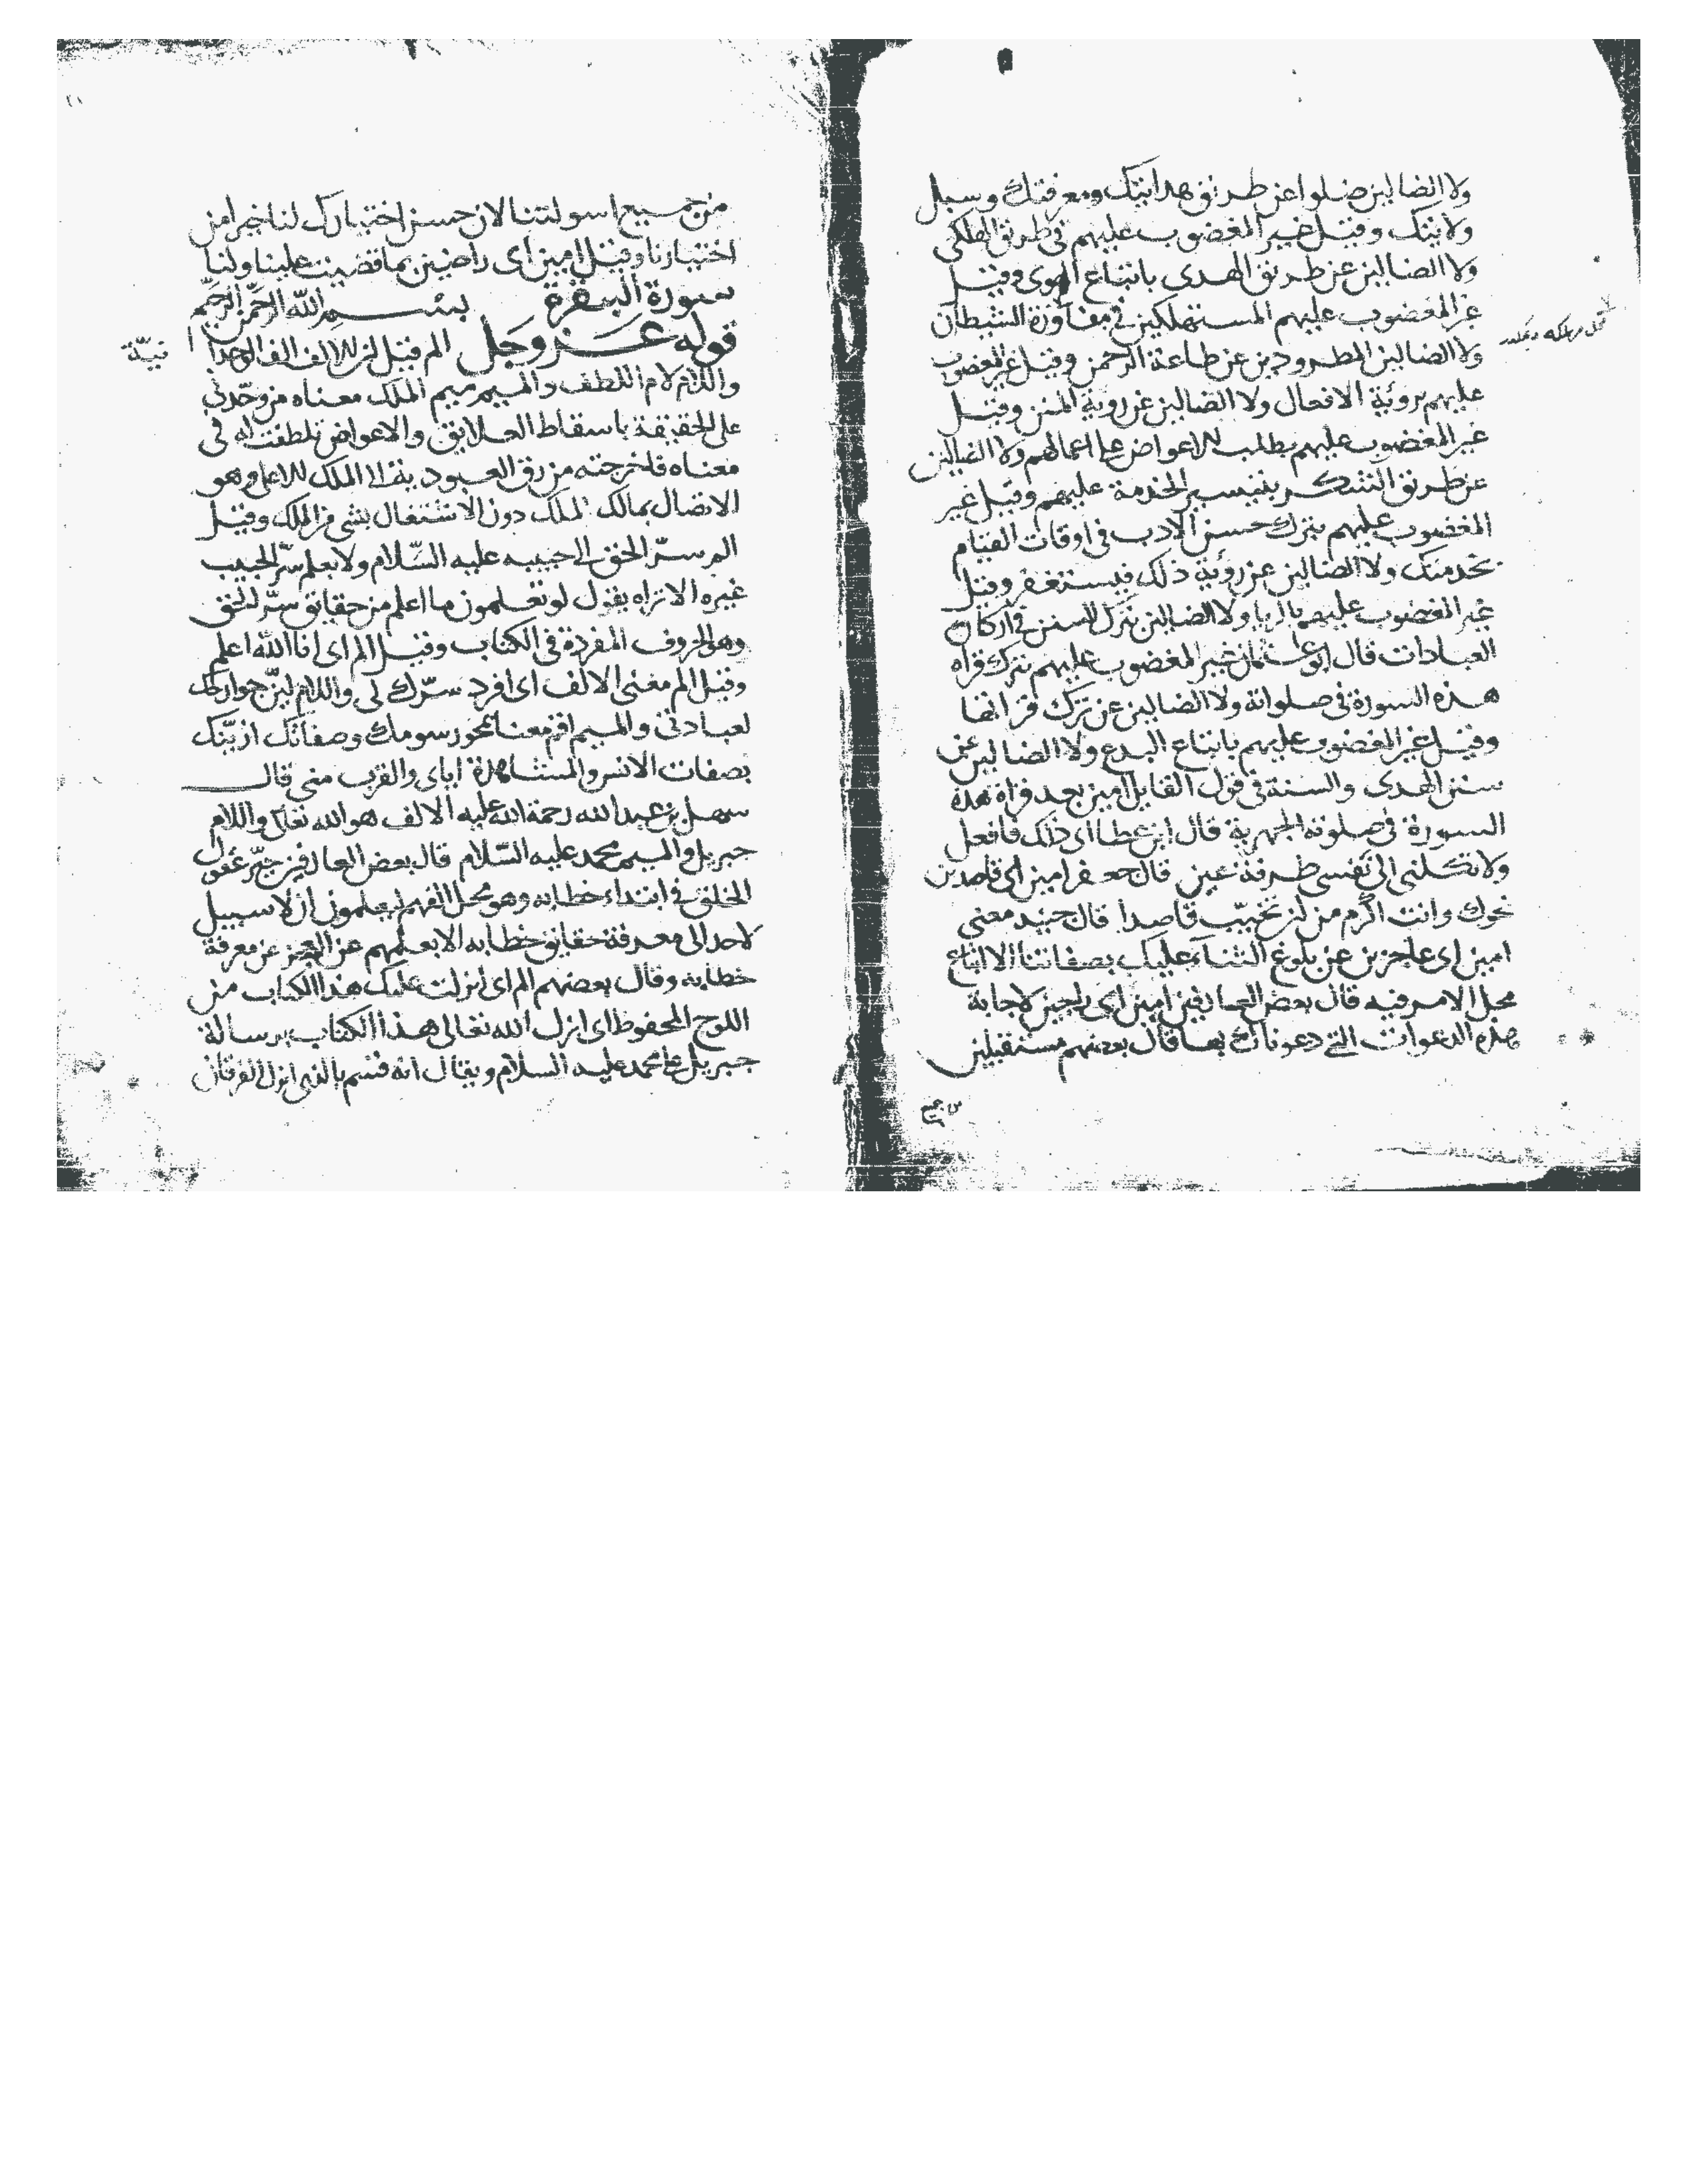 ولا الضالين ضلوا عن طريق هدايتك ومعرفتك وسبل
ولايتك وقيل غير المغضوب عليهم في طريق الهلكى
ولا الضالين عن طريق الهدى باتباع الهوى وقيل
غير المغضوب عليهم المستهلكين في مفاوزة الشيطان
ولا الضالين المطرودين عن طاعة الرحمن وقيل غير المغضوب
عليهم برؤية الافعال ولا الضالين عن روية المنن وقيل
غير المغضوب عليهم بطلب الاعواض على اعمالهم ولا الضالين
عن طريق التشكر بتيسير الخدمة عليهم وقيل غير
المغضوب عليهم بترك حسن الادب في اوقات القيام
بخدمتك ولا الضالين عن رؤية ذلك فيستغفر وقيل
غير المغضوب عليهم بالريا ولا الضالين بترك السنن في اركان
العبادات قال ابو عثمان غير المغضوب عليهم بترك قراة
هذه السورة في صلواته ولا الضالين عن ترك قرانها
وقيل غير المغضوب عليهم باتباع البدع ولا الضالين عن
سنن الهدى والسنة في قول القايل امين بعد قراة هذه
السورة في صلوته الجهرية قال ابن عطا اى ذلك فافعل
ولا تكلني الى نفسي طرفة عين قال جعفر امين اى قاصدين
نحوك وانت اكرم من ان تخيب قاصدا قال جنيد معنى
امين اى عاجزين عن بلوغ الثناء عليك بصفاتنا الا اتباع
محل الامر فيه قال بعض العارفين امين اى راجين لاجابة
هذه الدعوات التي دعوناك بها قال بعضهم مستقيلين
من جميع
من جميع اسولتنا لان حسن اختيارك لنا خير امن
اختيارنا وقيل امين اى راضين بما قضيت علينا ولنا
سورة البقرة بسم الله الرحمن الرحيم
قوله عز وجل الم قيل ان الالف الف الوحدا
نية
واللام لام اللطف والميم ميم الملك معناه من وحدني
على الحقيقة باسقاط العلايق والاعواض تلطفت له في
معناه فاخرجته من رق العبودية الى الملك الاعلى وهو
الاتصال بمالك الملك دون الاشتغال بشي من الملك وقيل
الم سرّ الحق الى حبيبه عليه السّلام ولا يعلم سرّ الحبيب
غيره الا تراه يقول لو تعلمون ما اعلم من حقايق سرّ الحق
وهو الحروف المفردة في الكتاب وقيل الم اى انا الله اعلم
وقيل الم معنى الالف اى افرد سرّك لي واللام ليّن جوارحك
لعبادتي والميم اقم معنا بمحو رسومك وصفاتك ازيّنك
بصفات الانس والمشاهدة اياى والقرب مني قال
سهل بن عبد الله رحمة الله عليه الالف هو الله تعالى واللام
جبريل والميم محمد عليه السّلام قال بعض العارفين حيّر عقول
الخلق في ابتداء خطابه وهو محل الفهم ليعلموا ان لا سبيل
لاحد الى معرفة حقايق خطابه الا بعلمهم عن العجز عن معرفة
خطابه وقال بعضهم الم اى انزلت عليك هذا الكتاب من
اللوح المحفوظ اى انزل الله تعالى هذا الكتاب برسالة
جبريل على محمد عليه السلام ويقال انه قسم بالذى انزل الفرقان